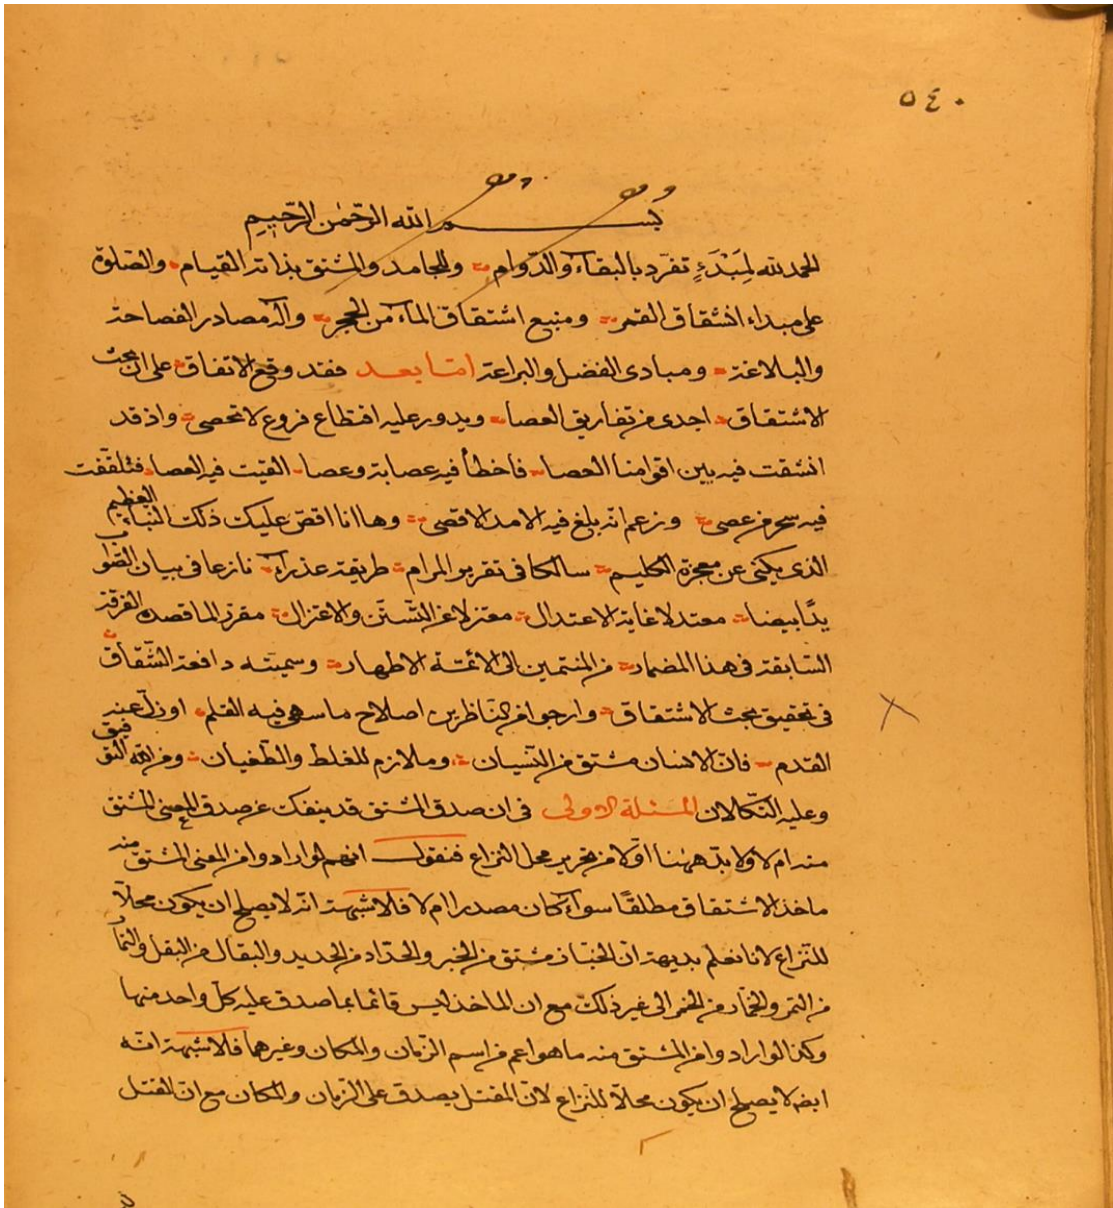 ٥٤٠
بسم الله الرحمن الرحيم
الحمد لله لِمَبْدَءٍ تفرّد بالبقاء والدّوام وللجامد والمشتق بذاته القيام والصّلوة
على مبداء انشقاق القمر ومنبع اشتقاق الماء من الحجر وآله مصادر الفصاحة
والبلاغة ومبادى الفضل والبراعة امّا بعد فقد وقع الاتفاق على ان بحث
الاشتقاق اجدى من تفاريق العصا ويدور عليه اقتطاع فروع لا تحصى واذ قد
انشقت فيه بين اقوامنا العصا فاخطأ فيه عصابة وعصا القيت فيه العصا فتلقّفت
فيه سحر من عصى وزعم انه بلغ فيه الامد الاقصى وها انا اقصّ عليك ذلك النباء العظيم
الذى يكنى عن معجزة الكليم سالكا فى تقرير المرام طريقة عذراء نازعا فى بيان الصّواب
يدًا بيضا معتدلا غاية الاعتدال معتزلا عن التّسنّن والاعتزال مقررا لما قصده الفرقة
السّابقة فى هذا المضمار من المنتمين الى الائمّة الاطهار وسميته دافعة الشّقاق
فى تحقيق بحث الاشتقاق وارجو من النّاظرين اصلاح ما سهى فيه القلم او زلّ عنه
القدم فانّ الانسان مشتق من النّسيان وملازم للغلط والطّغيان ومن الله التوفيق
وعليه التّكلان المسئلة الاولى فى ان صدق المشتق قد ينفك عن صدق المعنى المشتق
منه ام لا ولا بدّ ههنا اوّلا من تحرير محل النزاع فنقول انهم لو ارادوا من المعنى المشتقّ منه
ماخذ الاشتقاق مطلقًا سواء كان مصدرا ام لا فلا شبهة انّه لا يصلح ان يكون محلّا
للنّزاع لانا نعلم بديهة انّ الخبّاز مشتق من الخبز والحدّاد من الحديد والبقال من البقل والتمّار
من التمر والخمّار من الخمر الى غير ذلك مع ان الماخذ ليس قائما بما صدق عليه كلّ واحد منها
وكذا لو ارادوا من المشتق منه ما هو اعم من اسم الزّمان والمكان وغيرهما فلا شبهة انّه
ايضا لا يصلح ان يكون محلّا للنّزاع لانّ المقتل يصدق على الزّمان والمكان مع انّ القتل